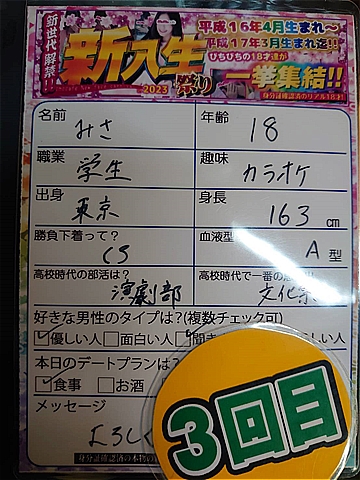 新世代解禁!!
新入生
2023
祭り
平成16年4月生まれ〜
平成17年3月生まれ迄!!
ぴちぴちの18才達が
一挙集結!!
身分証確認済のリアル18才!
名前 みさ
年齢 18
職業 学生
趣味 カラオケ
出身 東京
身長 163 cm
勝負下着って?
血液型 A 型
高校時代の部活は? 演劇部
高校時代で一番の思 文化祭
好きな男性のタイプは?(複数チェック可)
優しい人 面白い人
しい人
本日のデートプランは?
食事 お酒
メッセージ
よろしく
3回目